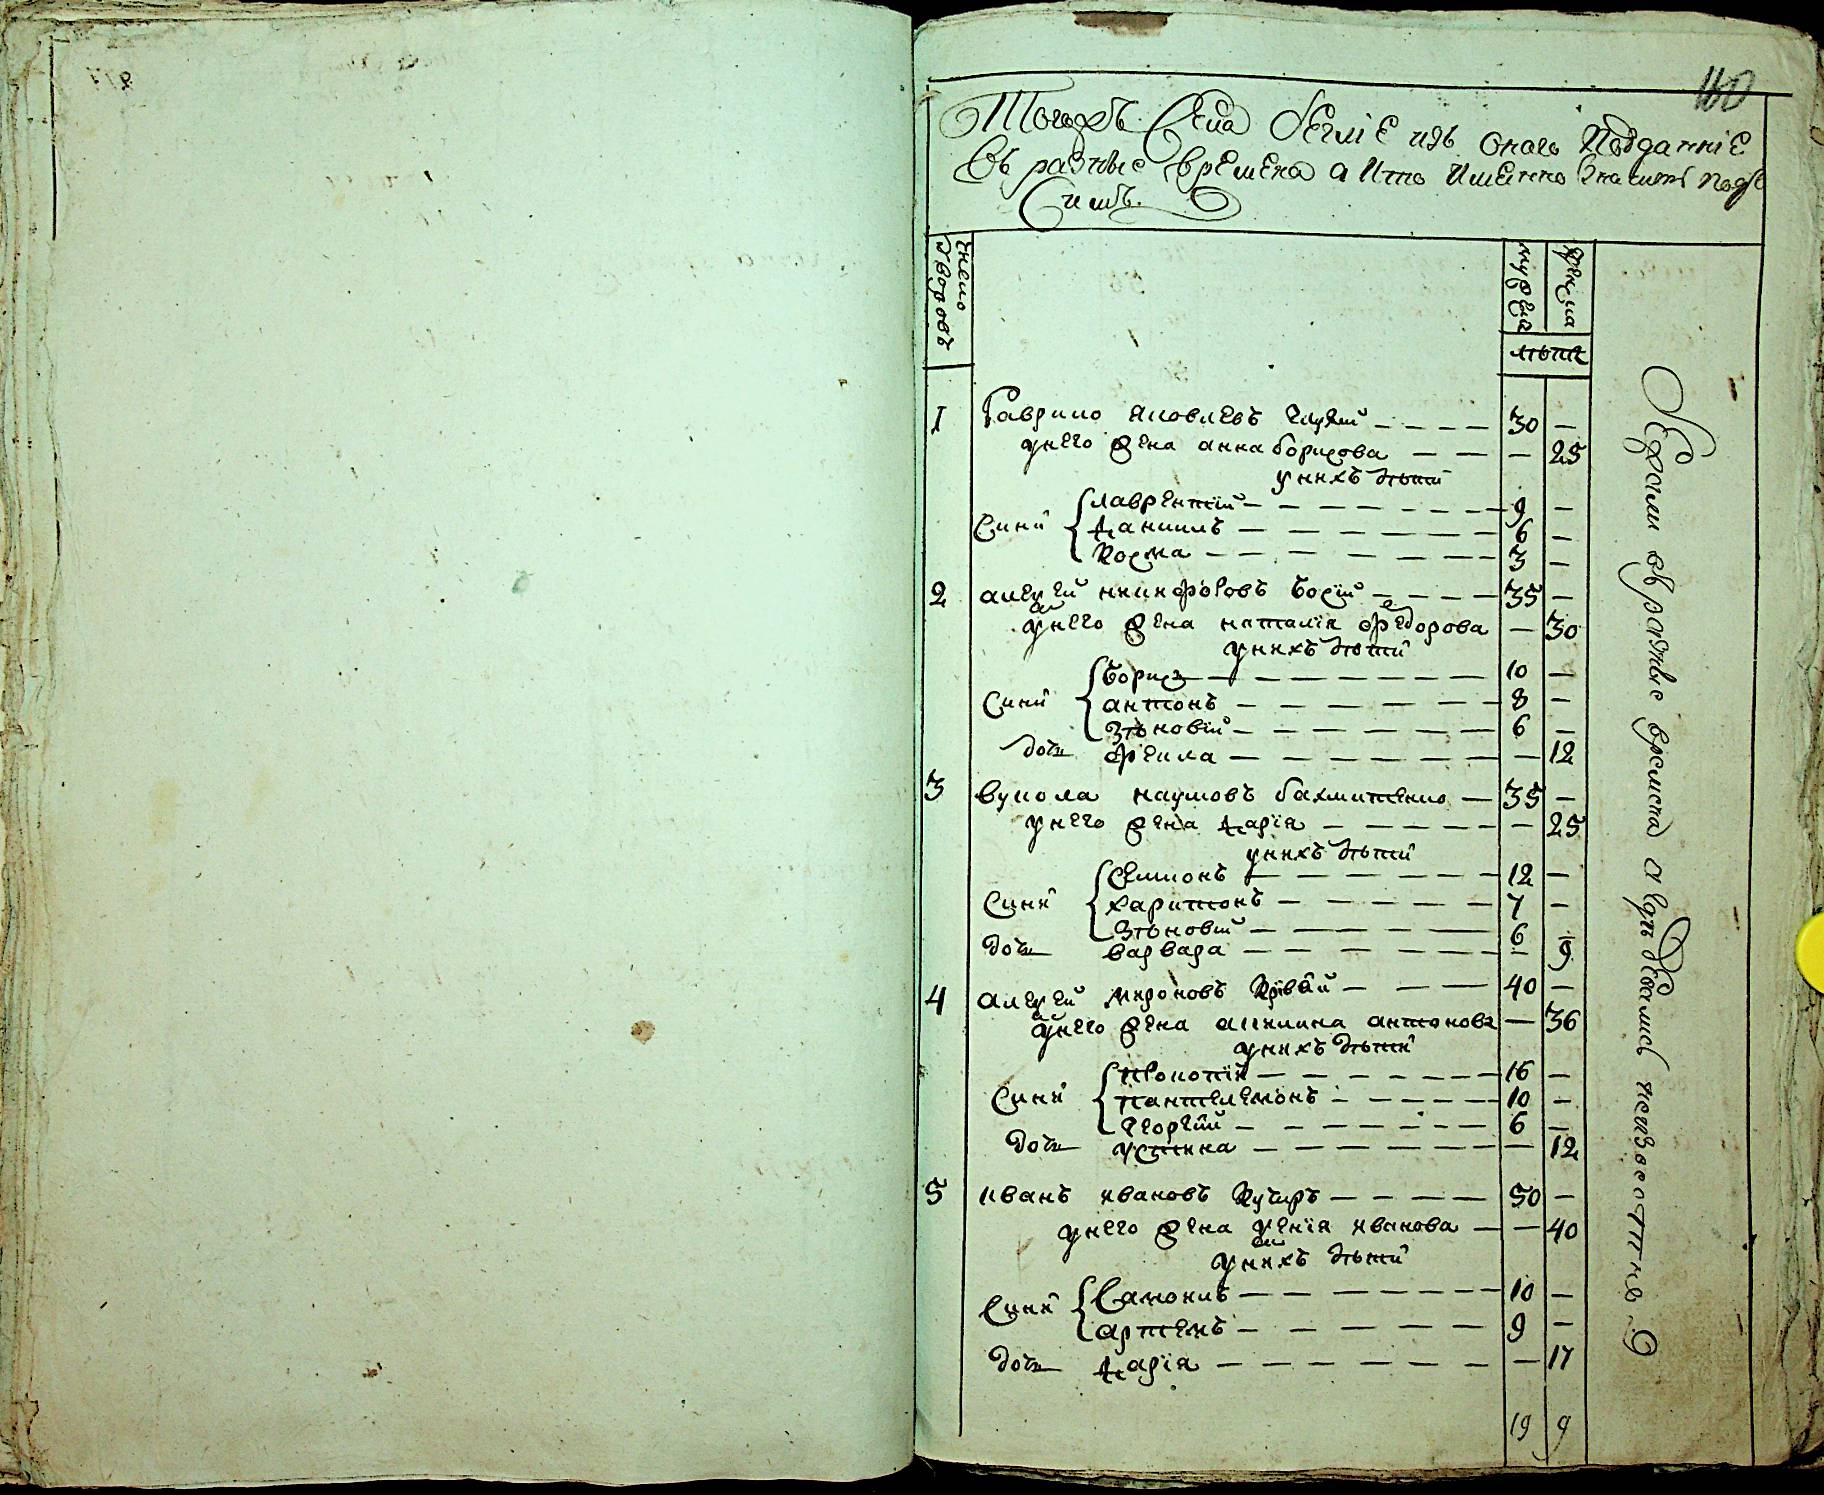 110
Тогожъ Села беглiе изъ оного Подданнiе
въ разные времена а Кто Именно Значитъ подъ
Симъ.
Число
Дворовъ
мужеска
женска
лѣта
1 Гаврило яковлевъ — — — — 30 —
унего жена анна борисова — — — 25
унихъ дѣти
Сини лаврентiй — — — — 9 —
Данiилъ — — — — 6 —
Косма — — — — 3 —
2 алеѯей никифоровъ Босiй — — — — 35 —
унего жена наталiя федорова — 30
унихъ дѣти
Сини Борисъ — — — — 10 —
антонъ — — — — 8 —
Зѣновiй — — — — 6 —
дочь фекла — — — — 12
3 вукола наумовъ бахмитенко — 35 —
унего жена Дарiя — — — — 25
унихъ дѣти
Сини Симионъ — — — — 12 —
харитонъ — — — — 7 —
Зѣновiй — — — — 6 —
дочь варвара — — — — 9
4 алеѯей мироновъ Кривiй — — — 40 —
унего жена акилина антонова — 36
унихъ дѣти
Сини прокопiй — — — — 16 —
пантелемонъ — — — — 10 —
Георгiй — — — — 6 —
дочь устина — — — — 12
5 иванъ ивановъ Кучеръ — — — — 50 —
унего жена ѯенiя иванова — — 40
унихъ дѣти
Сини Самоилъ — — — — 10 —
артемъ — — — — 9 —
дочь Дарiя — — — — 17
19 9
Бежали въ разные времена а где девались неизвестно